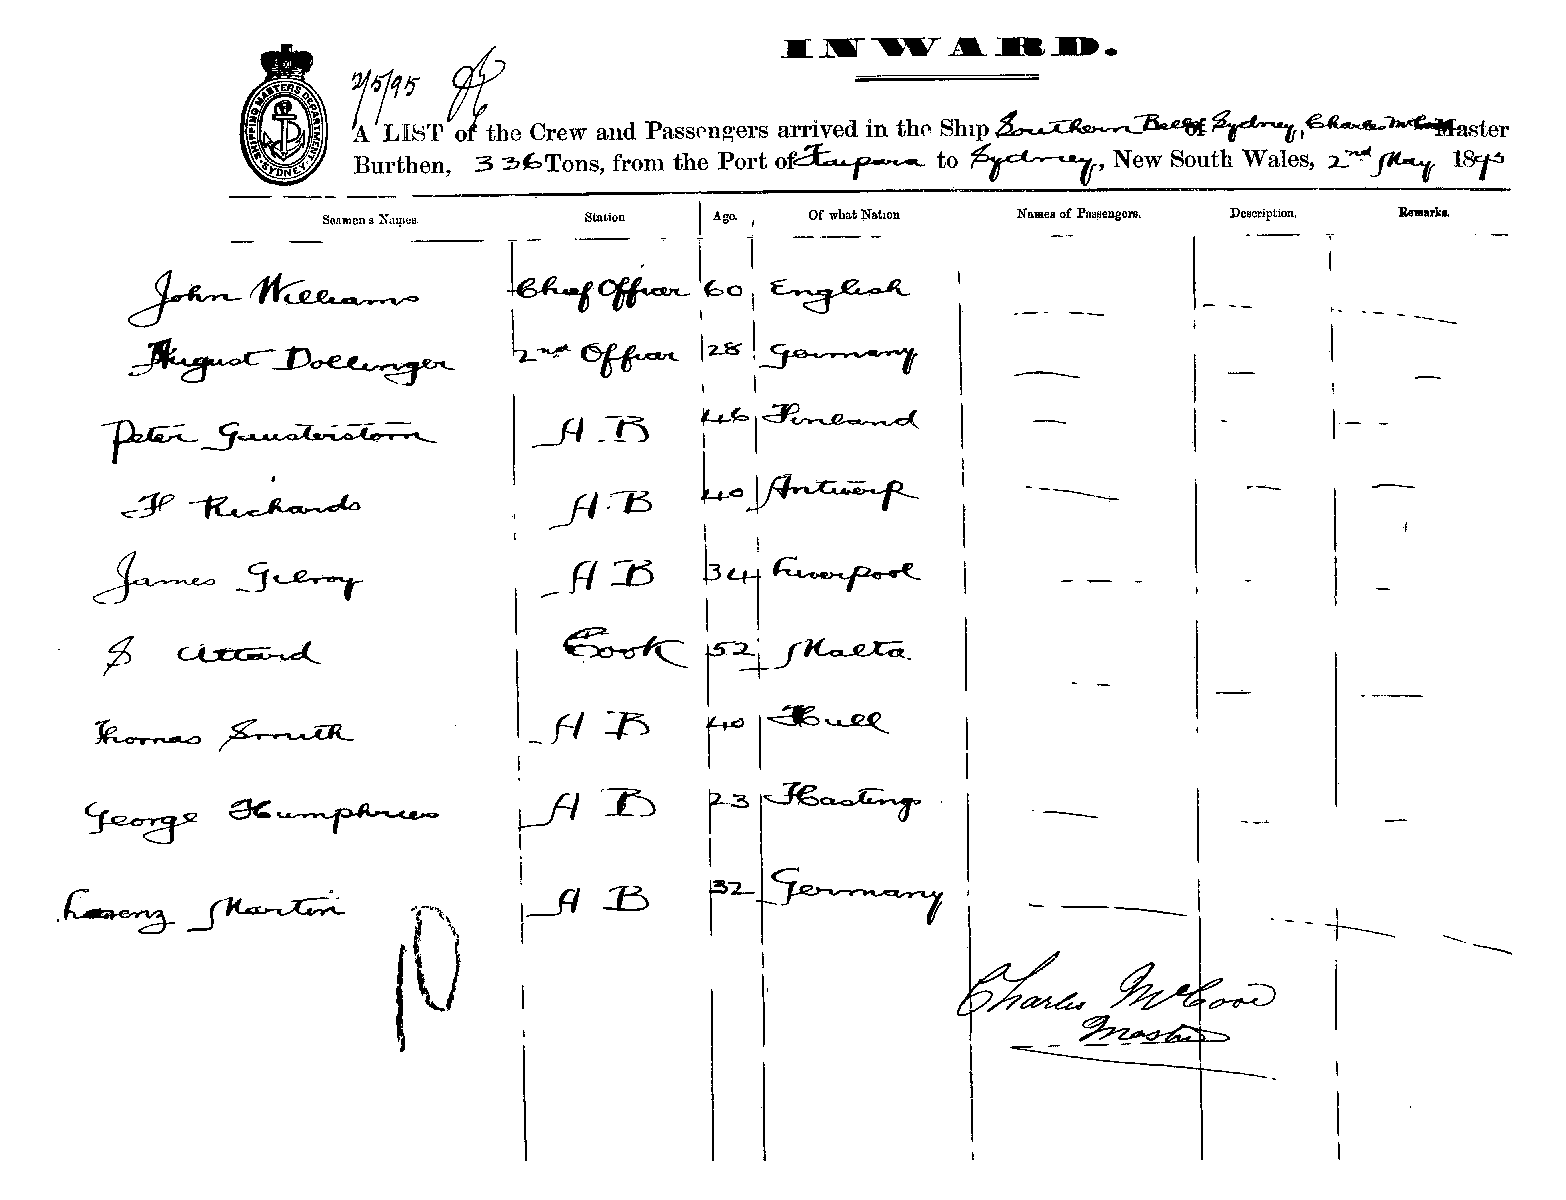 INWARD.
2/5/95
SHIPPING MASTERS DEPARTMENT SYDNEY
A LIST of the Crew and Passengers arrived in the Ship Southern Belle of Sydney, Charles Master
Burthen, 336 Tons, from the Port of to Sydney, New South Wales, 2nd May 1895
Seamens Names. Station Age. Of what Nation Names of Passengers. Description. Remarks.
John Williams Chief Officer 60 English
August Dollinger 2nd Officer 28 Germany
Peter A.B 46 Finland
F Richards A.B 40 Antwerp
James Gilroy A B 34 Liverpool
S Attard Cook 52 Malta
Thomas Smith A B 40 Hull
George Humphries A B 23 Hastings
Lorenz Martin A B 32 Germany
10
Charles McCooe
Master